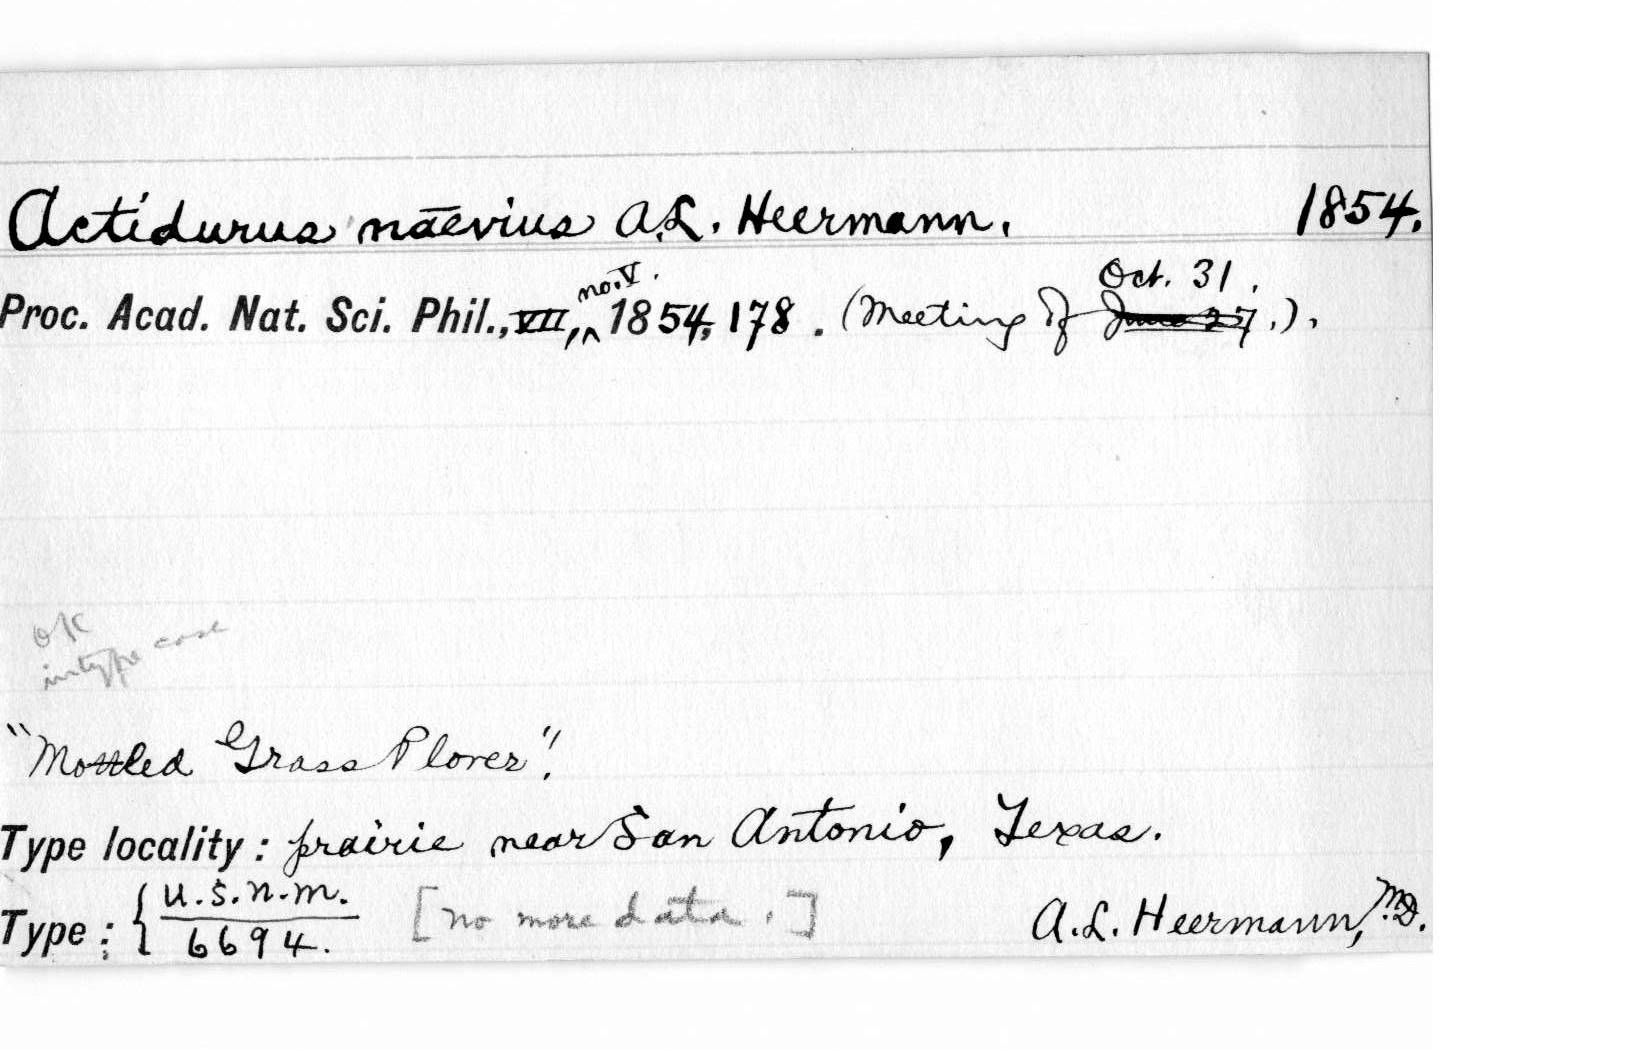 Actidurus naevius A.L. Heermann. 1854.
Proc. Acad. Nat. Sci. Phil., VII, no. V. 1854, 178. (Meeting of June 27 Oct. 31.).
OK
in type case
"Mottled Grass Plover".
Type locality: prairie near San Antonio, Texas.
Type: { U.S.N.M. / 6694. [no more data.] A.L. Heermann, M.D.